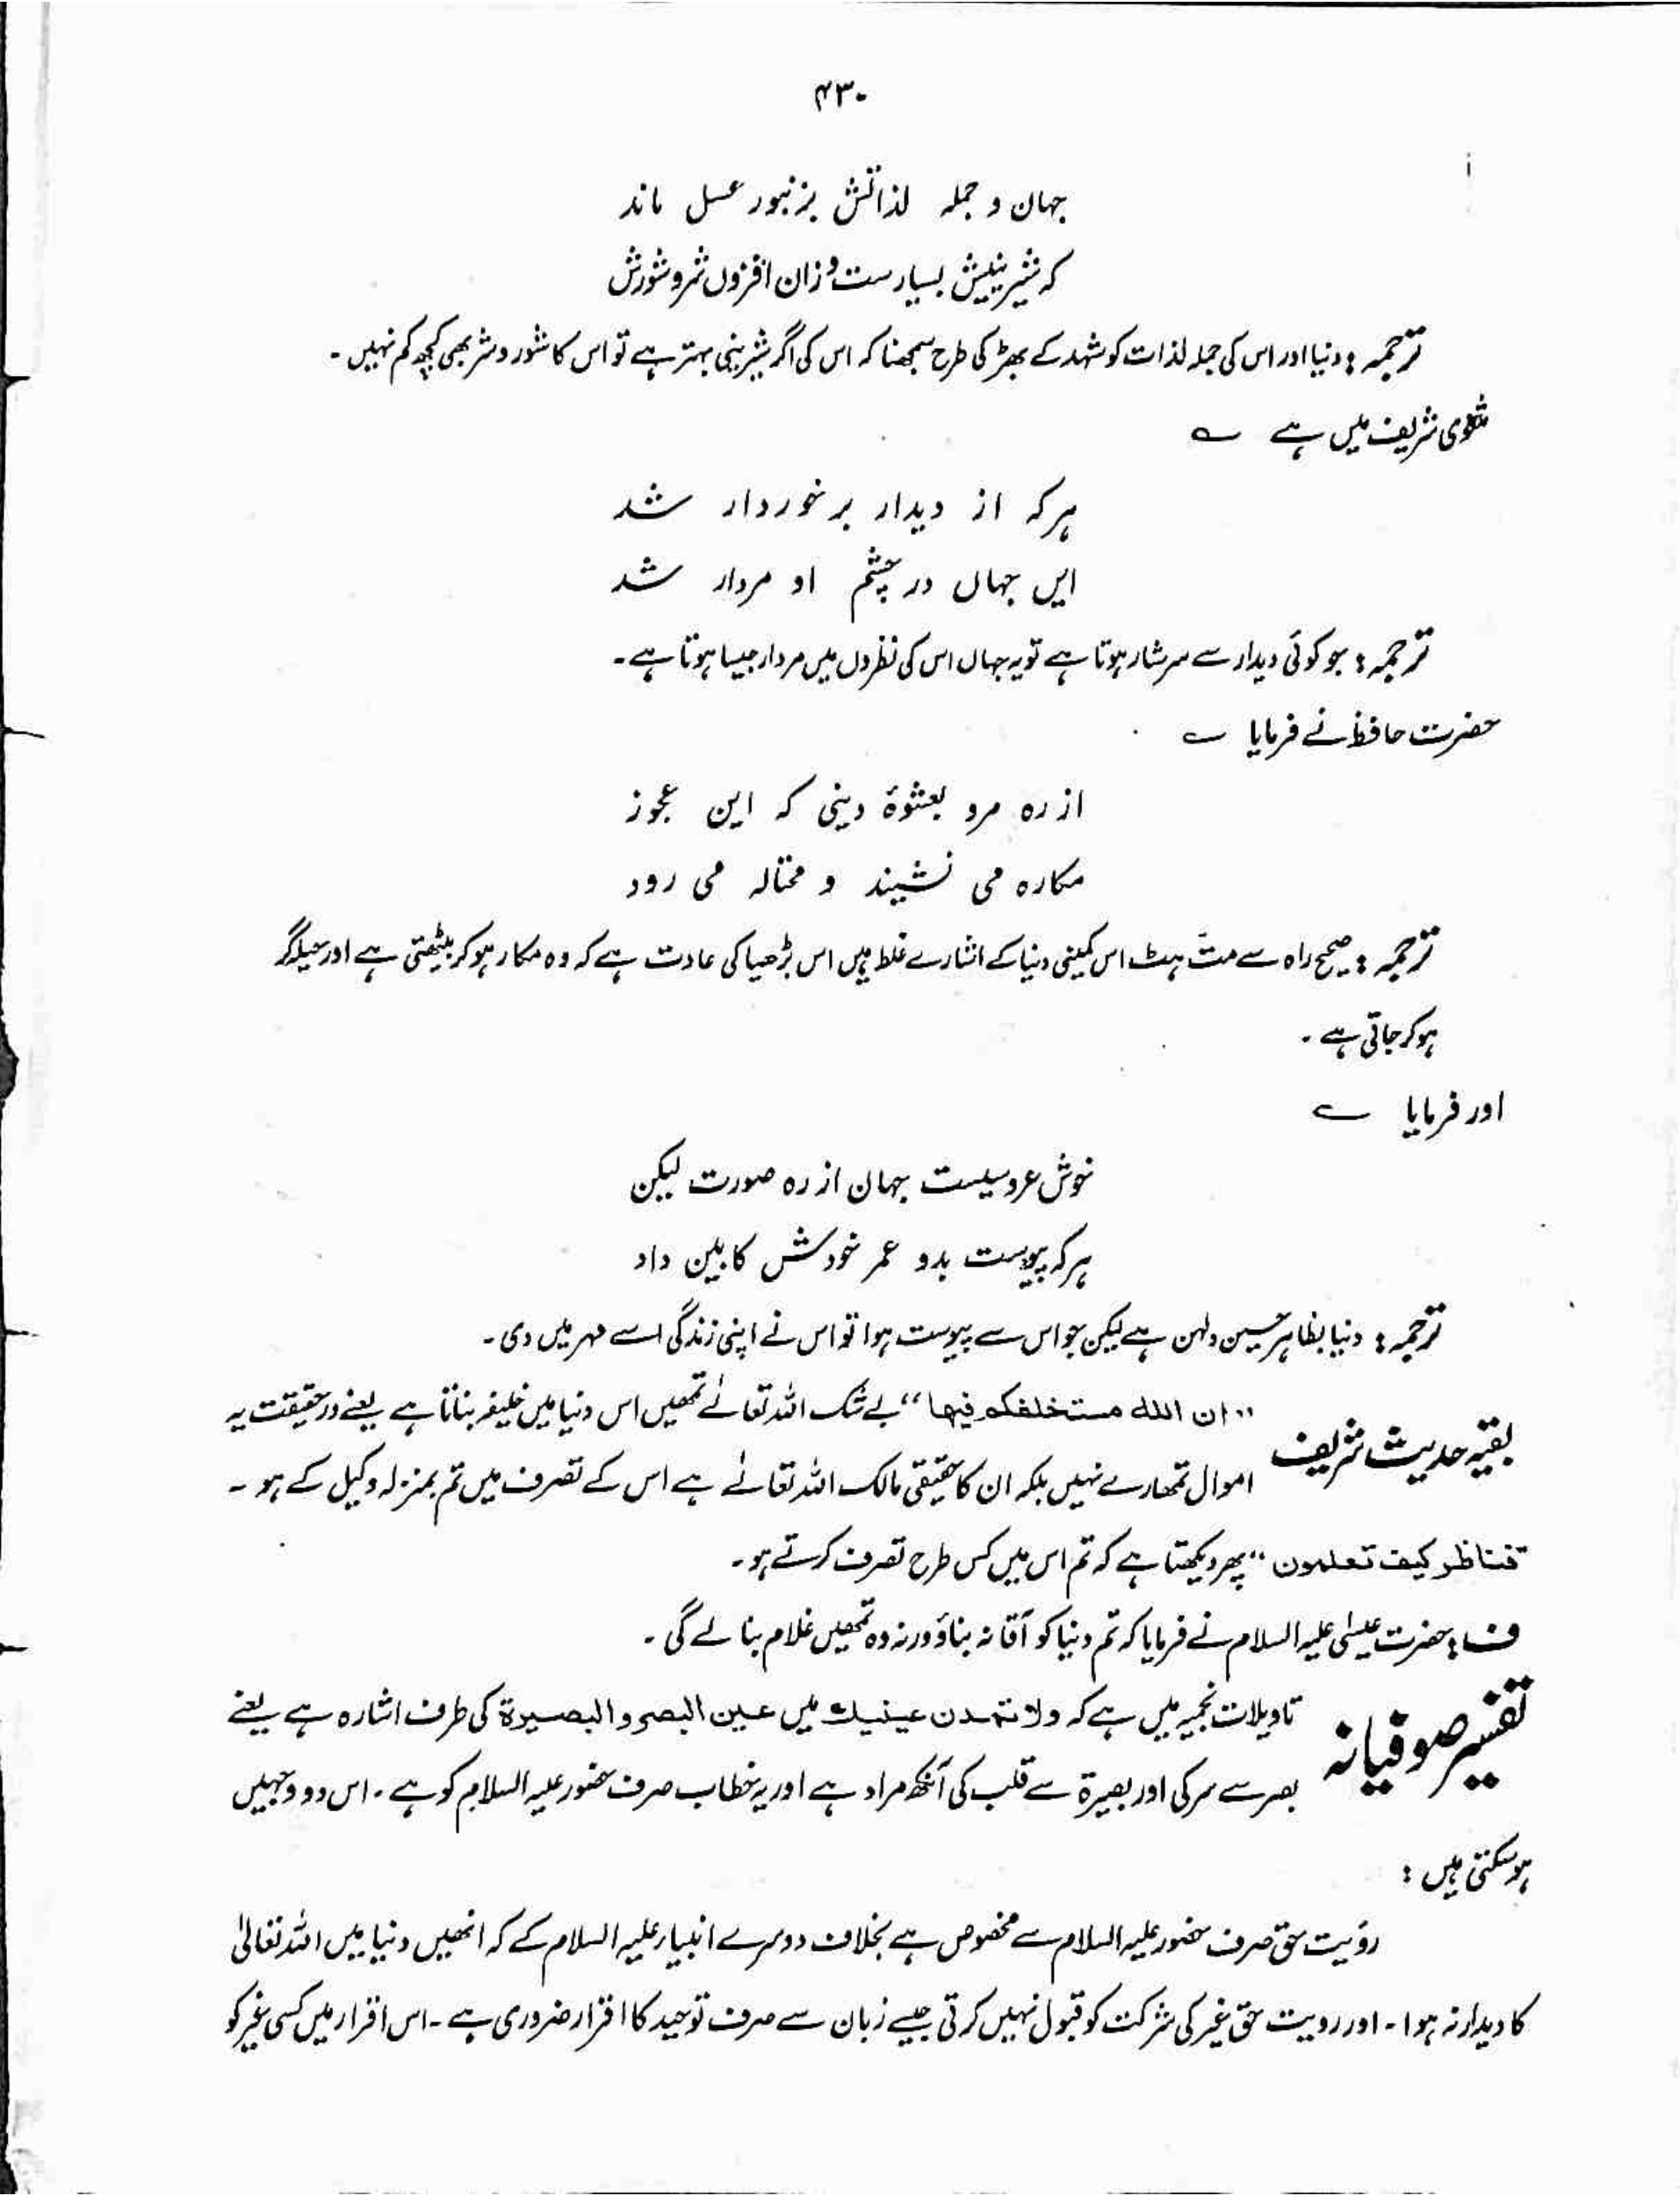 ۴۳۰
جہان و جملہ لذاتش بزنبور عسل ماند
کہ شیرینیش بسیارست و زان افزوں شر و شورش
ترجمہ : دنیا اور اس کی جملہ لذات کو شہد کے بھڑ کی طرح سمجھنا کہ اس کی اگر شیرینی بہتر ہے تو اس کا شور و شر بھی کچھ کم نہیں ۔
مثنوی شریف میں ہے ؎
ہر کہ از دیدار برخوردار شد
ایں جہاں در چشم او مردار شد
ترجمہ : جو کوئی دیدار سے سرشار ہوتا ہے تو یہ جہاں اس کی نظروں میں مردار جیسا ہوتا ہے ۔
حضرت حافظ نے فرمایا ؎
از رہ مرو بعشوۂ دینی کہ این عجوز
مکارہ می نشیند و محتالہ می رود
ترجمہ : صحیح راہ سے مت ہٹ اس کمینی دنیا کے اشارے غلط ہیں اس بڑھیا کی عادت ہے کہ وہ مکار ہو کر بیٹھتی ہے اور حیلہ گر
ہو کر جاتی ہے ۔
اور فرمایا ؎
خوش عروسیست جہان از رہ صورت لیکن
ہر کہ پیوست بدو عمر خودش کابین داد
ترجمہ : دنیا بظاہر حسین دلہن ہے لیکن جو اس سے پیوست ہوا تو اس نے اپنی زندگی اسے مہر میں دی ۔
بقیہ حدیث شریف "ان اللہ مستخلفکم فیہا" بے شک اللہ تعالےٰ تمھیں اس دنیا میں خلیفہ بناتا ہے یعنے در حقیقت یہ
اموال تمھارے نہیں بلکہ ان کا حقیقی مالک اللہ تعالےٰ ہے اس کے تصرف میں تم بمنزلہ وکیل کے ہو ۔
"فناظر کیف تعملون" پھر دیکھتا ہے کہ تم اس میں کس طرح تصرف کرتے ہو ۔
ف : حضرت عیسٰی علیہ السلام نے فرمایا کہ تم دنیا کو آقا نہ بناؤ ورنہ وہ تمھیں غلام بنا لے گی ۔
تفسیر صوفیانہ تاویلات نجمیہ میں ہے کہ ولا تمدن عینیک میں عین البصر و البصیرۃ کی طرف اشارہ ہے یعنے
بصر سے سر کی اور بصیرۃ سے قلب کی آنکھ مراد ہے اور یہ خطاب صرف حضور علیہ السلام کو ہے ۔ اس دو وجہیں
ہو سکتی ہیں :
رؤیت حق صرف حضور علیہ السلام سے مخصوص ہے بخلاف دوسرے انبیاء علیہ السلام کے کہ انھیں دنیا میں اللہ تعالیٰ
کا دیدار نہ ہوا ۔ اور رویت حق غیر کی شرکت کو قبول نہیں کرتی جیسے زبان سے صرف توحید کا اقرار ضروری ہے ۔ اس اقرار میں کسی غیر کو